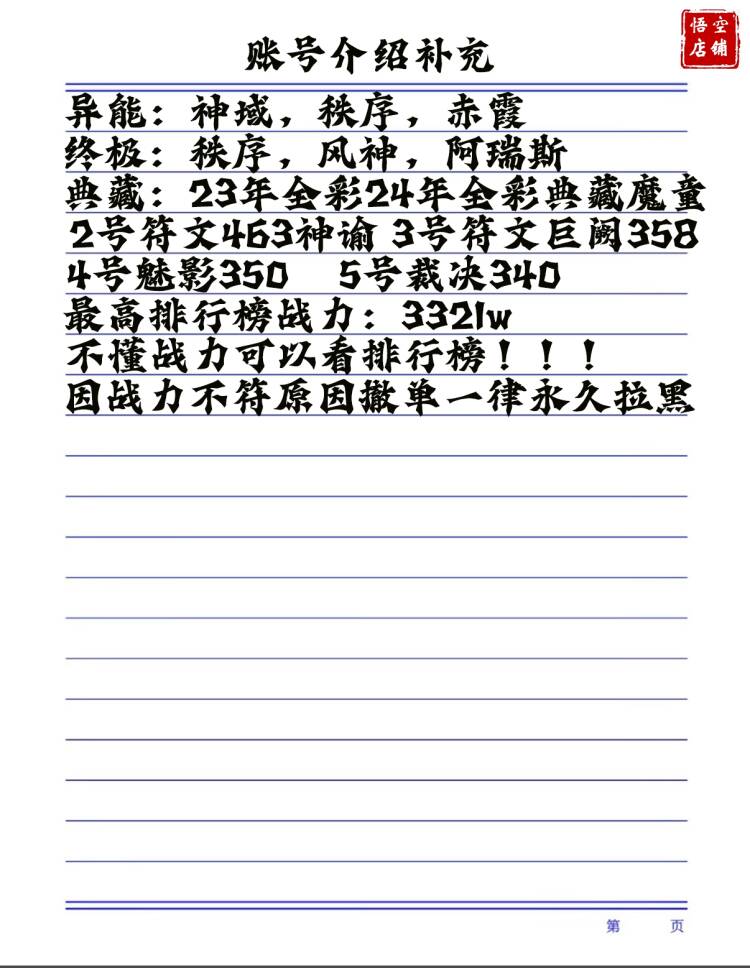 悟空
店铺
账号介绍补充
异能：神域，秩序，赤霞
终极：秩序，风神，阿瑞斯
典藏：23年全彩24年全彩典藏魔童
2号符文463神谕 3号符文巨阙358
4号魅影350 5号裁决340
最高排行榜战力：3321w
不懂战力可以看排行榜！！！
因战力不符原因撤单一律永久拉黑
第 页